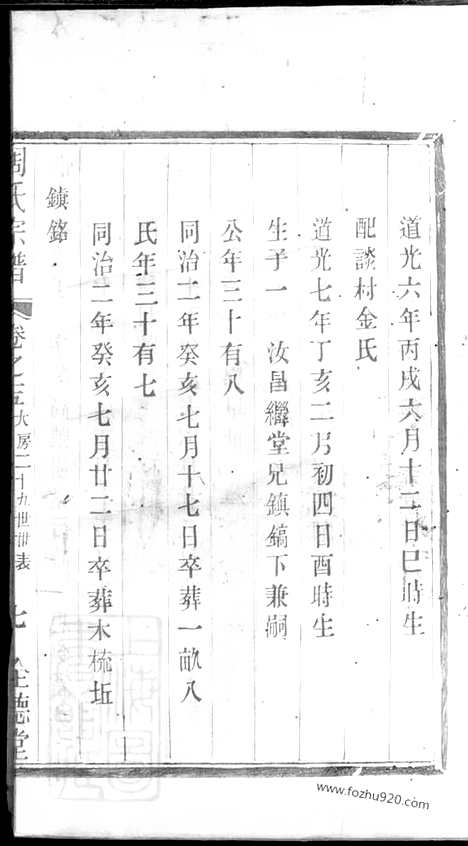 道光六年丙戌六月十二日巳時生
配談村金氏
道光七年丁亥二月初四日酉時生
生子一　汝昌繼堂兄鎮鎬下兼嗣
公年三十有八
同治二年癸亥七月十七日卒葬一畝八
氏年三十有七
同治二年癸亥七月廿二日卒葬木梳坵
鎮銘
周氏宗譜　卷之五大房二十九世世表　七
德堂
www.fozhu920.com